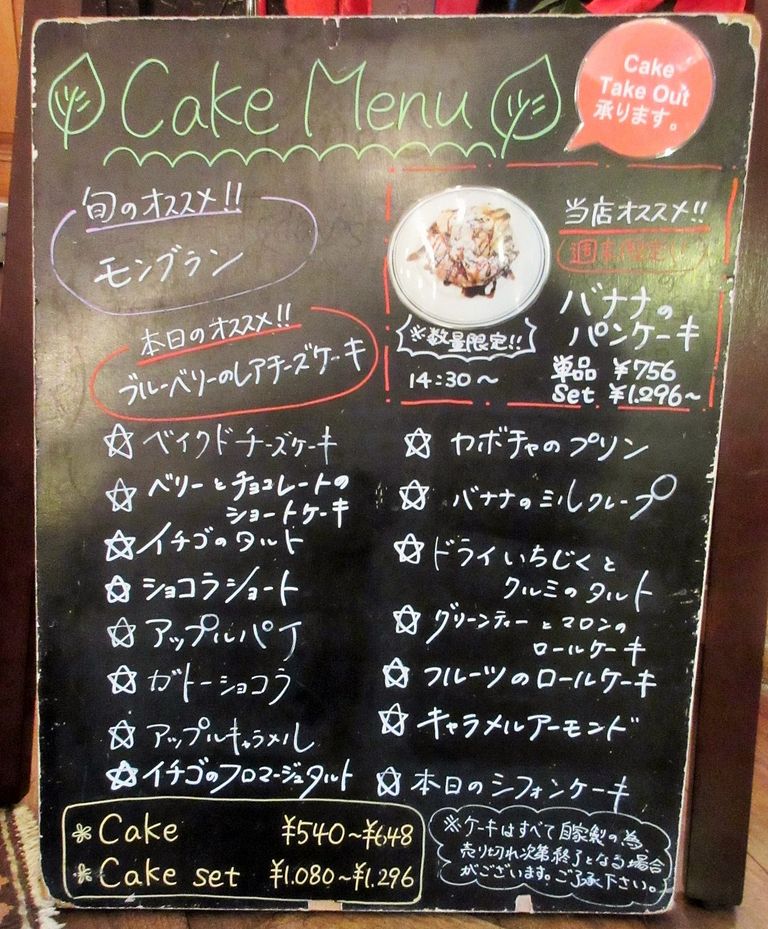 Cake Menu
Cake
Take Out
承ります。
旬のオススメ!!
モンブラン
本日のオススメ!!
ブルーベリーのレアチーズケーキ
当店オススメ!!
バナナの
パンケーキ
※数量限定!!
14:30〜
単品 ¥756
Set ¥1.296〜
☆ ベイクドチーズケーキ
☆ ベリーとチョコレートの
ショートケーキ
☆ イチゴのタルト
☆ ショコラショート
☆ アップルパイ
☆ ガトーショコラ
☆ アップルキャラメル
☆ イチゴのフロマージュタルト
☆ カボチャのプリン
☆ バナナのミルクレープ
☆ ドライいちじくと
クルミのタルト
☆ グリーンティーとマロンの
ロールケーキ
☆ フルーツのロールケーキ
☆ キャラメルアーモンド
☆ 本日のシフォンケーキ
Cake ¥540〜¥648
Cake set ¥1.080〜¥1.296
※ケーキはすべて自家製の為、
売り切れ次第終了となる場合
がございます。ご了承下さい。